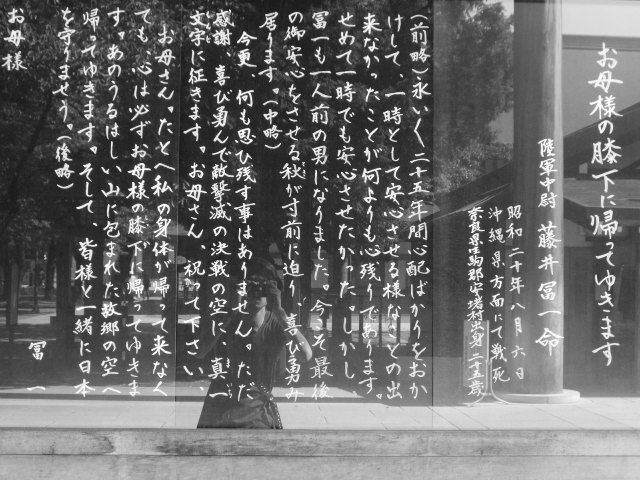 お母様の膝下に帰ってゆきます
陸軍中尉 藤井冨一命
昭和二十年八月六日
沖縄県方面にて戦死
奈良県生駒郡安堵村出身 二十五歳
（前略）永いく二十五年間心配ばかりをおか
けして、一時として安心させる様なことの出
来なかったことが何よりも心残りであります。
せめて一時でも安心させたかった。しかし
冨一も一人前の男になりました。今こそ最後
の御安心をさせる秋が寸前に迫り、喜び勇み
居ります。（中略）
今更、何も思ひ残す事はありません。ただ
感謝、喜び勇んで敵撃滅の決戦の空に、真一
文字に征きます。お母さん、祝って下さい、
お母さん。たとへ私の身体が帰って来なく
ても、心は必ずお母様の膝下に帰ってゆきま
す。あのうるはしい山に包まれた故郷の空へ
帰ってゆきます。そして、皆様と一緒に日本
を守りませう。（後略）
冨一
お母様